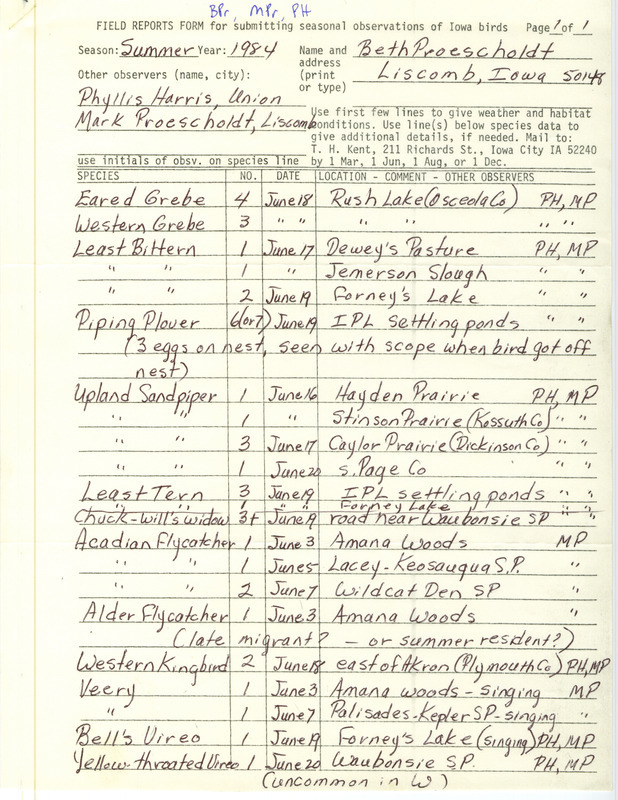 BPr, MPr, PH
FIELD REPORTS FORM for submitting seasonal observations of Iowa birds Page 1 of 1
Season: Summer Year: 1984 Name and address (print or type) Beth Proescholdt
Liscomb, Iowa 50148
Other observers (name, city):
Phyllis Harris, Union
Mark Proescholdt, Liscomb
Use first few lines to give weather and habitat
conditions. Use line(s) below species data to
give additional details, if needed. Mail to:
T. H. Kent, 211 Richards St., Iowa City IA 52240
use initials of obsv. on species line by 1 Mar, 1 Jun, 1 Aug, or 1 Dec.
SPECIES NO. DATE LOCATION - COMMENT - OTHER OBSERVERS
Eared Grebe 4 June 18 Rush Lake (Osceola Co) PH, MP
Western Grebe 3 " " " " " "
Least Bittern 1 June 17 Dewey's Pasture PH, MP
" " 1 " Jemerson Slough " "
" " 2 June 19 Forney's Lake " "
Piping Plover 6(or 7) June 19 IPL settling ponds " "
(3 eggs on nest, seen with scope when bird got off
nest)
Upland Sandpiper 1 June 16 Hayden Prairie PH, MP
" " 1 " Stinson Prairie (Kossuth Co) " "
" " 3 June 17 Caylor Prairie (Dickinson Co) " "
" " 1 June 20 S. Page Co " "
Least Tern 3 June 19 IPL settling ponds " "
" " " " " Forney Lake " "
Chuck-will's widow 3+ June 19 road near Waubonsie SP " "
Acadian Flycatcher 1 June 3 Amana Woods MP
" " 1 June 5 Lacey-Keosauqua S.P. "
" " 2 June 7 Wildcat Den SP "
Alder Flycatcher 1 June 3 Amana Woods "
(late migrant? - or summer resident?)
Western Kingbird 2 June 18 east of Akron (Plymouth Co) PH, MP
Veery 1 June 3 Amana woods - singing MP
" 1 June 7 Palisades-Kepler SP - singing "
Bell's Vireo 1 June 19 Forney's Lake (singing) PH, MP
Yellow-throated Vireo 1 June 20 Waubonsie S.P. PH, MP
(uncommon in W)